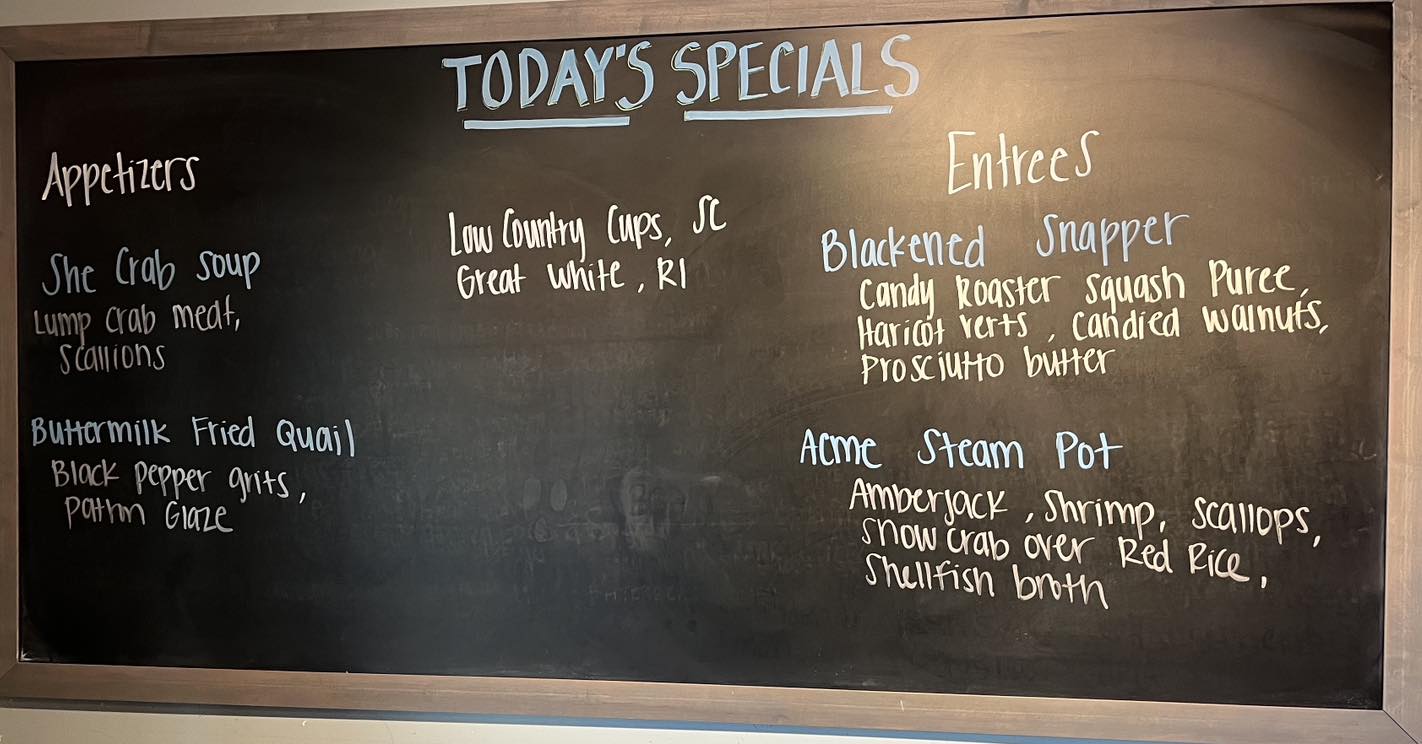 TODAY'S SPECIALS
Appetizers
She Crab Soup
Lump crab meat,
Scallions
Buttermilk Fried Quail
Black pepper grits,
Glaze
Low Country Cups, SC
Great White, RI
Entrees
Blackened Snapper
Candy Roaster Squash Puree,
Haricot Verts, Candied walnuts,
Prosciutto butter
Acme Steam Pot
Amberjack, Shrimp, Scallops,
Snow crab over Red Rice,
Shellfish broth